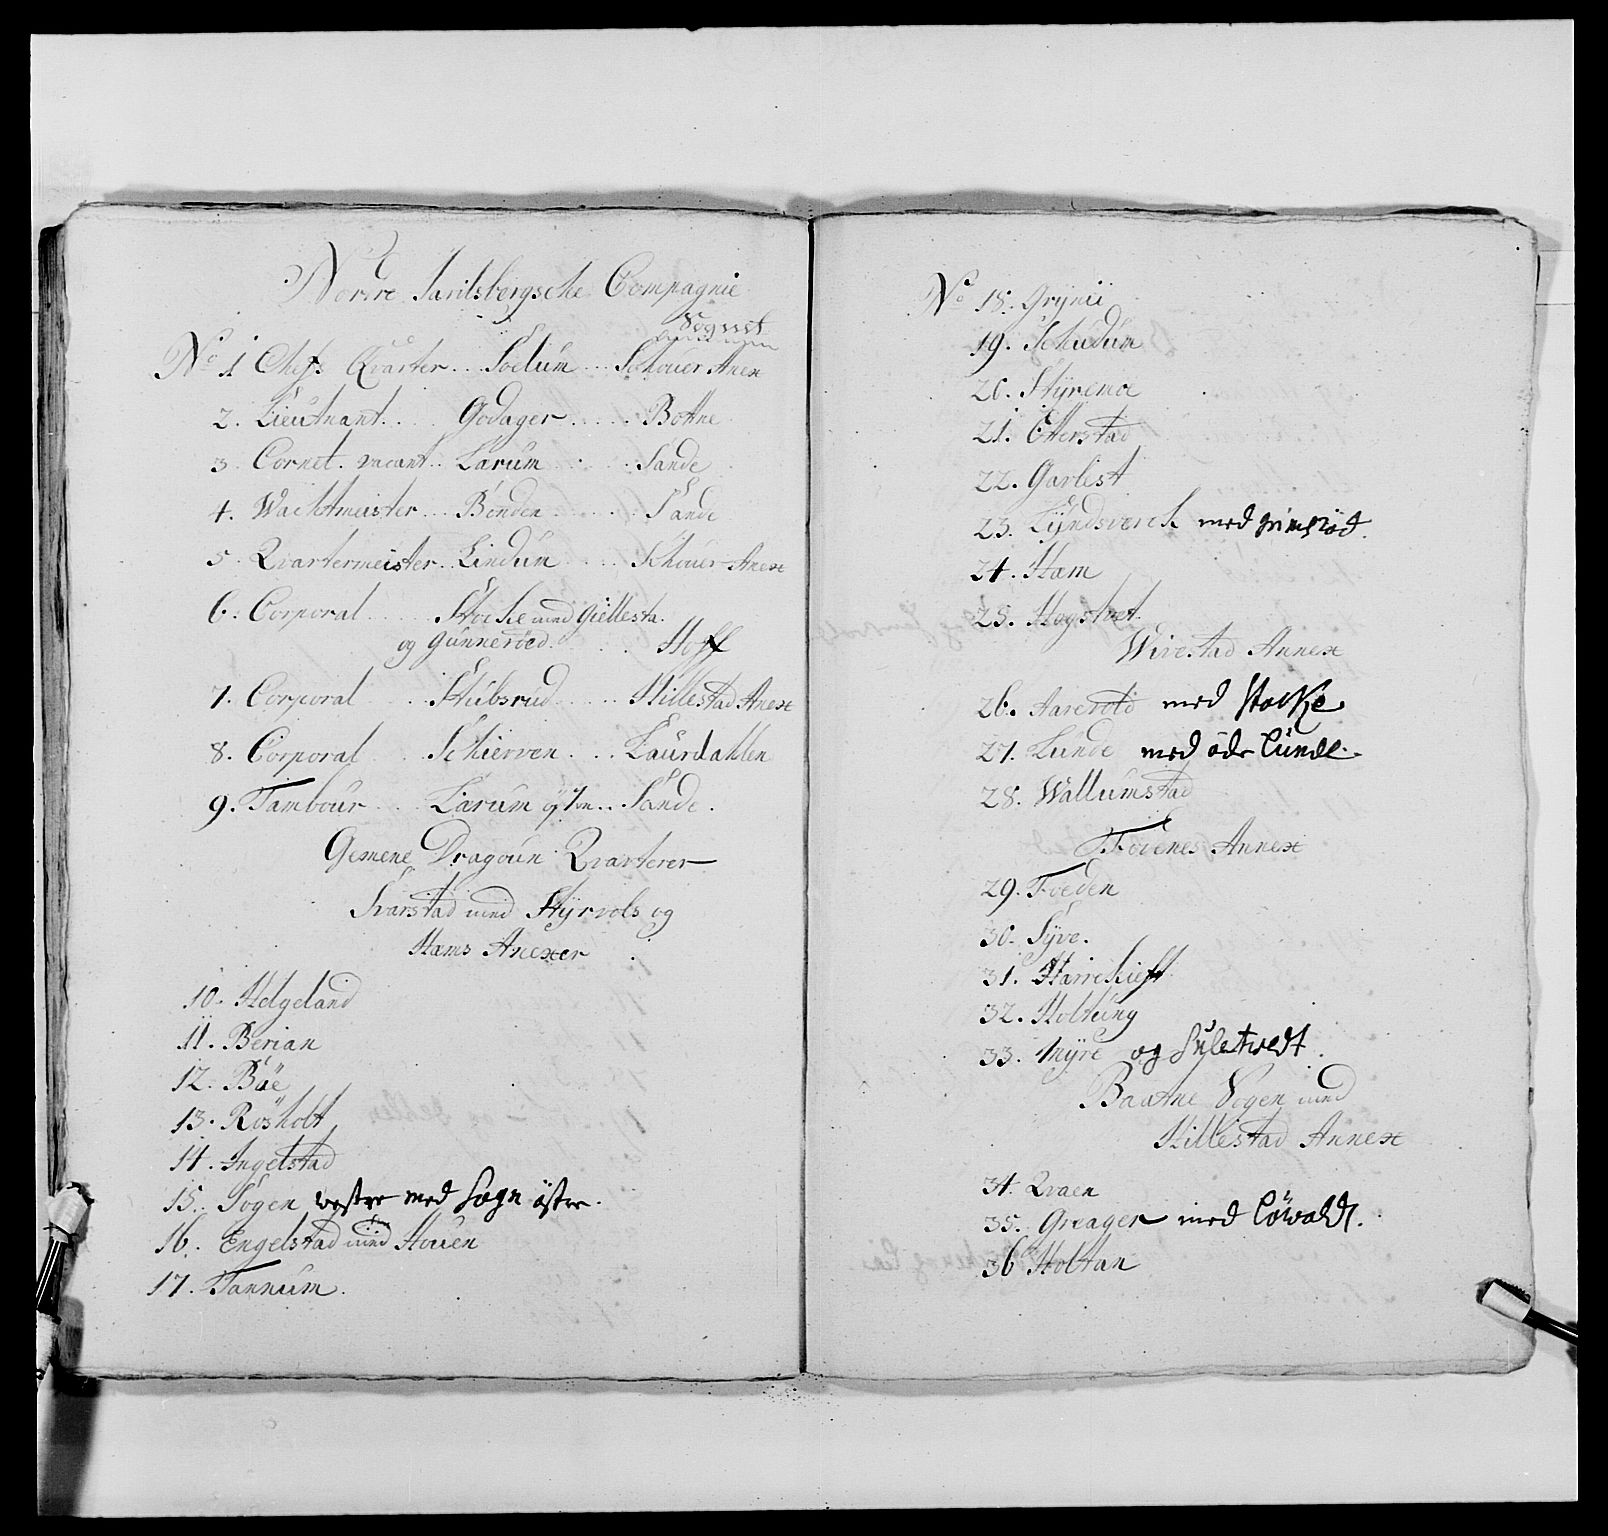 Nordre Jarilsbergsche Compagnie
Sognet
No 1 Chefs Qvarter Soelum Schouer Anex
2. Lieutnant Godager Bottne
3. Cornet. vacant Larum Sande
4. Wachtmeister Bönden Sande
5. Qvartermeister Lindum Schouer Anex
6. Corporal Stocke med Giellesta
og Gunneröed. Hoff
7. Corporal Stubsrud Hillestad Anex
8. Corporal Schierven Laurdahlen
9. Tambour Larum Sande.
Gemene Dragoun Qvarterer
Svarstad med Styrvols og
Hems Anexer
10. Helgeland
11. Berian
12. Böe
13. Rösholt
14. Ingelstad
15. Sögen vestre med Sogn östre.
16. Engelstad med Houen
17. Tannum.
No 18. Grynii
19. Schudum
20. Styremoe
21. Etterstad
22. Garlest
23. Lyndsverck med grimsröd.
24. Ham
25. Hogstvet
Wivestad Annex
26. Aareröld med Stocke
27. Lunde med öde Lunde.
28. Wallumstad
Fövenes Annex
29. Foeden
30. Syve.
31. Harrekieft
32. Holtung
33. Myre og Suletvedt.
Baatne Sogen med
Hillestad Annex
34. Qvaen
35. Greager med Löwaldt.
36 Holtan